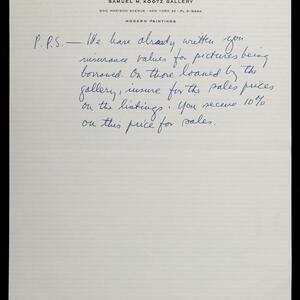 SAMUEL M. KOOTZ GALLERY
600 MADISON AVENUE · NEW YORK 22 · PL 5-
MODERN PAINTINGS
P.P.S. — We have already written you
insurance values for pictures being
borrowed. On those loaned by the
gallery, insure for the sales prices
on the listings. You secure 10%
on this price for sales.